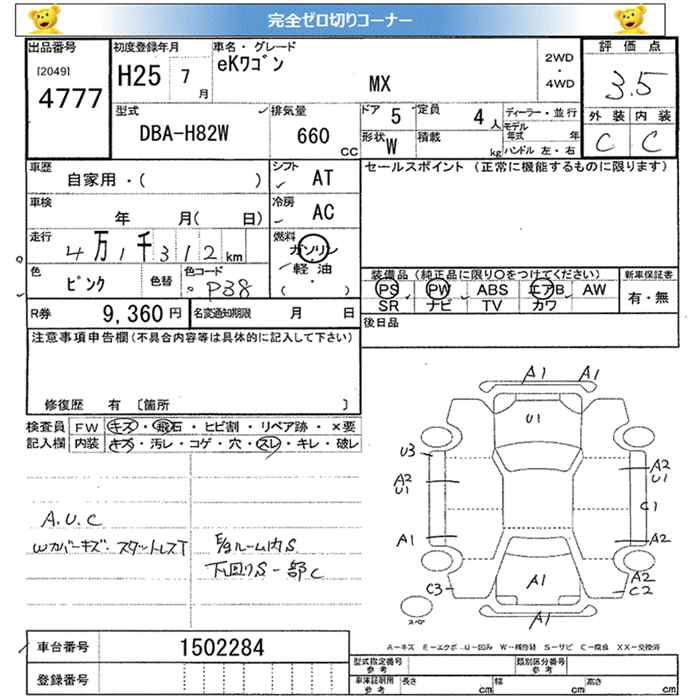 完全ゼロ切りコーナー
出品番号 [2049] 4777
初度登録年月 H25 7月
車名・グレード eKワゴン MX
2WD・4WD
評価点 3.5
外装 内装
C C
型式 DBA-H82W
排気量 660 CC
ドア 5
定員 4人
形状 W
積載 kg
ディーラー・並行
モデル年式 年
ハンドル 左・右
車歴 自家用・( )
シフト AT
セールスポイント (正常に機能するものに限ります)
車検 年 月( 日)
冷房 AC
走行 4万1千312km
燃料 ガソリン・軽油 ( ・ )
色 ピンク
色替
色コード P38
装備品(純正品に限り○をつけてください)
PS PW ABS エアB AW
SR ナビ TV カワ
新車保証書 有・無
R券 9,360円
名変通知期限 月 日
後日品
注意事項申告欄(不具合内容等は具体的に記入して下さい)
修復歴 有 〔箇所 〕
検査員 FW キズ・飛石・ヒビ割・リペア跡・×要
記入欄 内装 キズ・汚レ・コゲ・穴・スレ・キレ・破レ
A.U.C
Wカバーキズ・スタットレスT
E/gルーム内S
下回りS一部C
A1 A1
U1
U3
A2 U1
A2 U1
C1
A1
A2
A1
A2
C3
C2
A1
スペア
A-キズ E-エクボ U-凹み W-補修跡 S-サビ C-腐食 XX-交換済
車台番号 1502284
登録番号
型式指定番号 参考
類別区分番号 参考
車庫証明用 参考 長さ cm 幅 cm 高さ cm